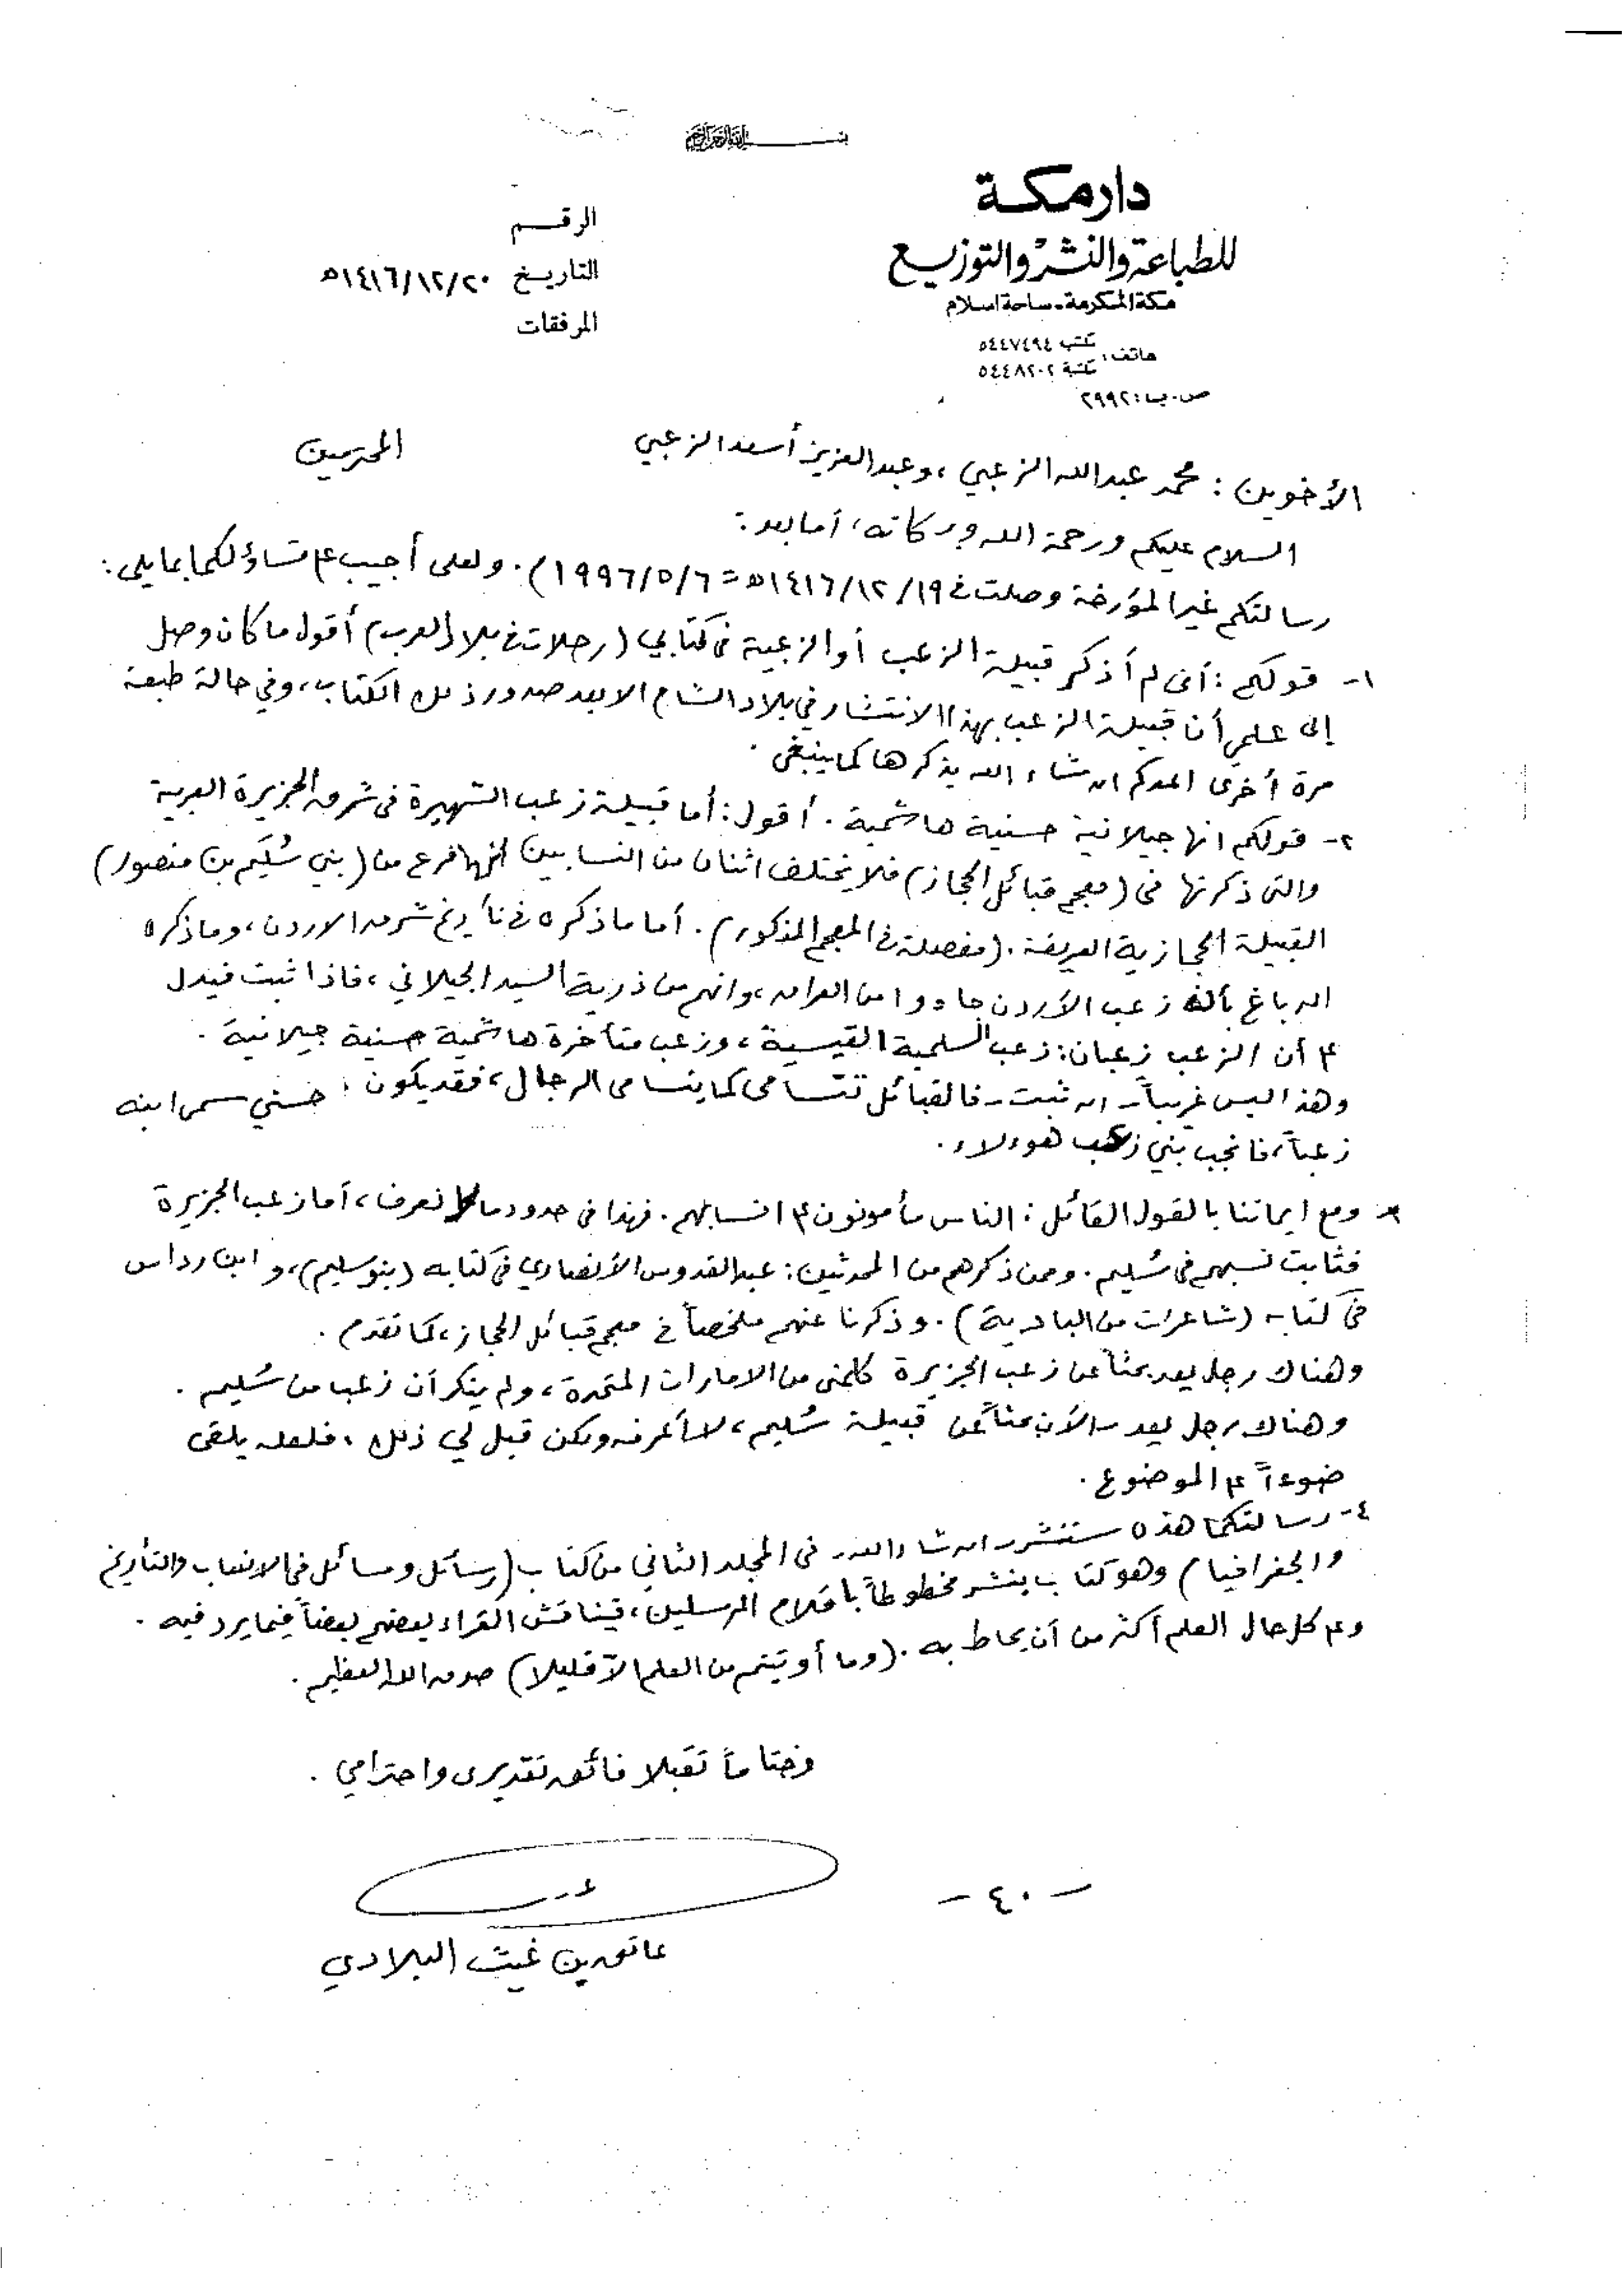 بسم الله الرحمن الرحيم
دار مكة
للطباعة والنشر والتوزيع
مكة المكرمة - ساحة اسلام
هاتف: مكتب ٥٤٤٧٤٩٤
مكتبة ٥٤٤٨٢٠٢
ص.ب: ٢٩٩٢
الرقم
التاريخ ١٤١٦/١٢/٢٠هـ
المرفقات
الأخوين: محمد عبدالله الزعبي، وعبدالعزيز أسعد الزعبي المحترمين
السلام عليكم ورحمة الله وبركاته، أما بعد:
رسالتكم غير المؤرخة وصلت في ١٤١٦/١٢/١٩هـ = ١٩٩٦/٥/٦م). ولعلي أجيب على تساؤلكما بما يلي:
١- قولكم: أني لم أذكر قبيلة الزعب أو الزعبية في كتابي (رحلات في بلاد العرب) أقول ما كان وصل
إلى علمي أن قبيلة الزعب بهذا الانتشار في بلاد الشام الا بعد صدور ذلك الكتاب، وفي حالة طبعه
مرة أخرى اعدكم ان شاء الله بذكرها كما ينبغي.
٢- قولكم انها جيلانية حسنية هاشمية. أقول: أما قبيلة زعب الشهيرة في شرق الجزيرة العربية
والتي ذكرتها في (معجم قبائل الحجاز) فلا يختلف اثنان من النسابين انها فرع من (بني سُليم بن منصور)
القبيلة الحجازية العريقة. (مفصلة في المعجم المذكور). أما ما ذكره في تأريخ شرق الاردن، وما ذكره
الدباغ بأن زعب الأردن جاءوا من العراق، وانهم من ذرية السيد الجيلاني، فاذا ثبت فيدل
على أن الزعب زعبان: زعب السلمية القيسية، وزعب متأخرة هاشمية حسنية جيلانية.
وهذا ليس غريباً - ان ثبت - فالقبائل تتسامى كما يتسامى الرجال، فقد يكون: حسني سمى ابنه
زعباً، فانجب بني زعب هؤلاء.
٣- ومع ايماننا بالقول القائل: الناس مأمونون على انسابهم. فهذا في حدود ما لا نعرف، أما زعب الجزيرة
فثابت نسبهم في سُليم. وممن ذكرهم من المحدثين: عبدالقدوس الأنصاري في كتابه (بنو سليم)، و ابن رداس
في كتابه (شاعرات من البادية). وذكرنا عنهم ملخصاً في معجم قبائل الحجاز، كما تقدم.
وهناك رجل يعد بحثاً عن زعب الجزيرة كلمني من الامارات المتحدة، ولم ينكر أن زعبا من سُليم.
وهناك رجل يعد - الآن بحثاً عن قبيلة سُليم، لا أعرفه ولكن قيل لي ذلك، فلعله يلقي
ضوءاً على الموضوع.
٤- رسالتكما هذه ستنشر - ان شاء الله - في المجلد الثاني من كتاب (رسائل ومسائل في الانساب والتأريخ
والجغرافيا) وهو كتاب ينشر مخطوطاً بأقلام المرسلين، فيناقش القراء بعضهم بعضاً فيما يرد فيه.
وعلى كل حال العلم أكثر من أن يحاط به. (وما أوتيتم من العلم الا قليلا) صدق الله العظيم.
وختاماً تقبلا فائق تقديري واحترامي.
- ٤٠ -
عاتق بن غيث البلادي